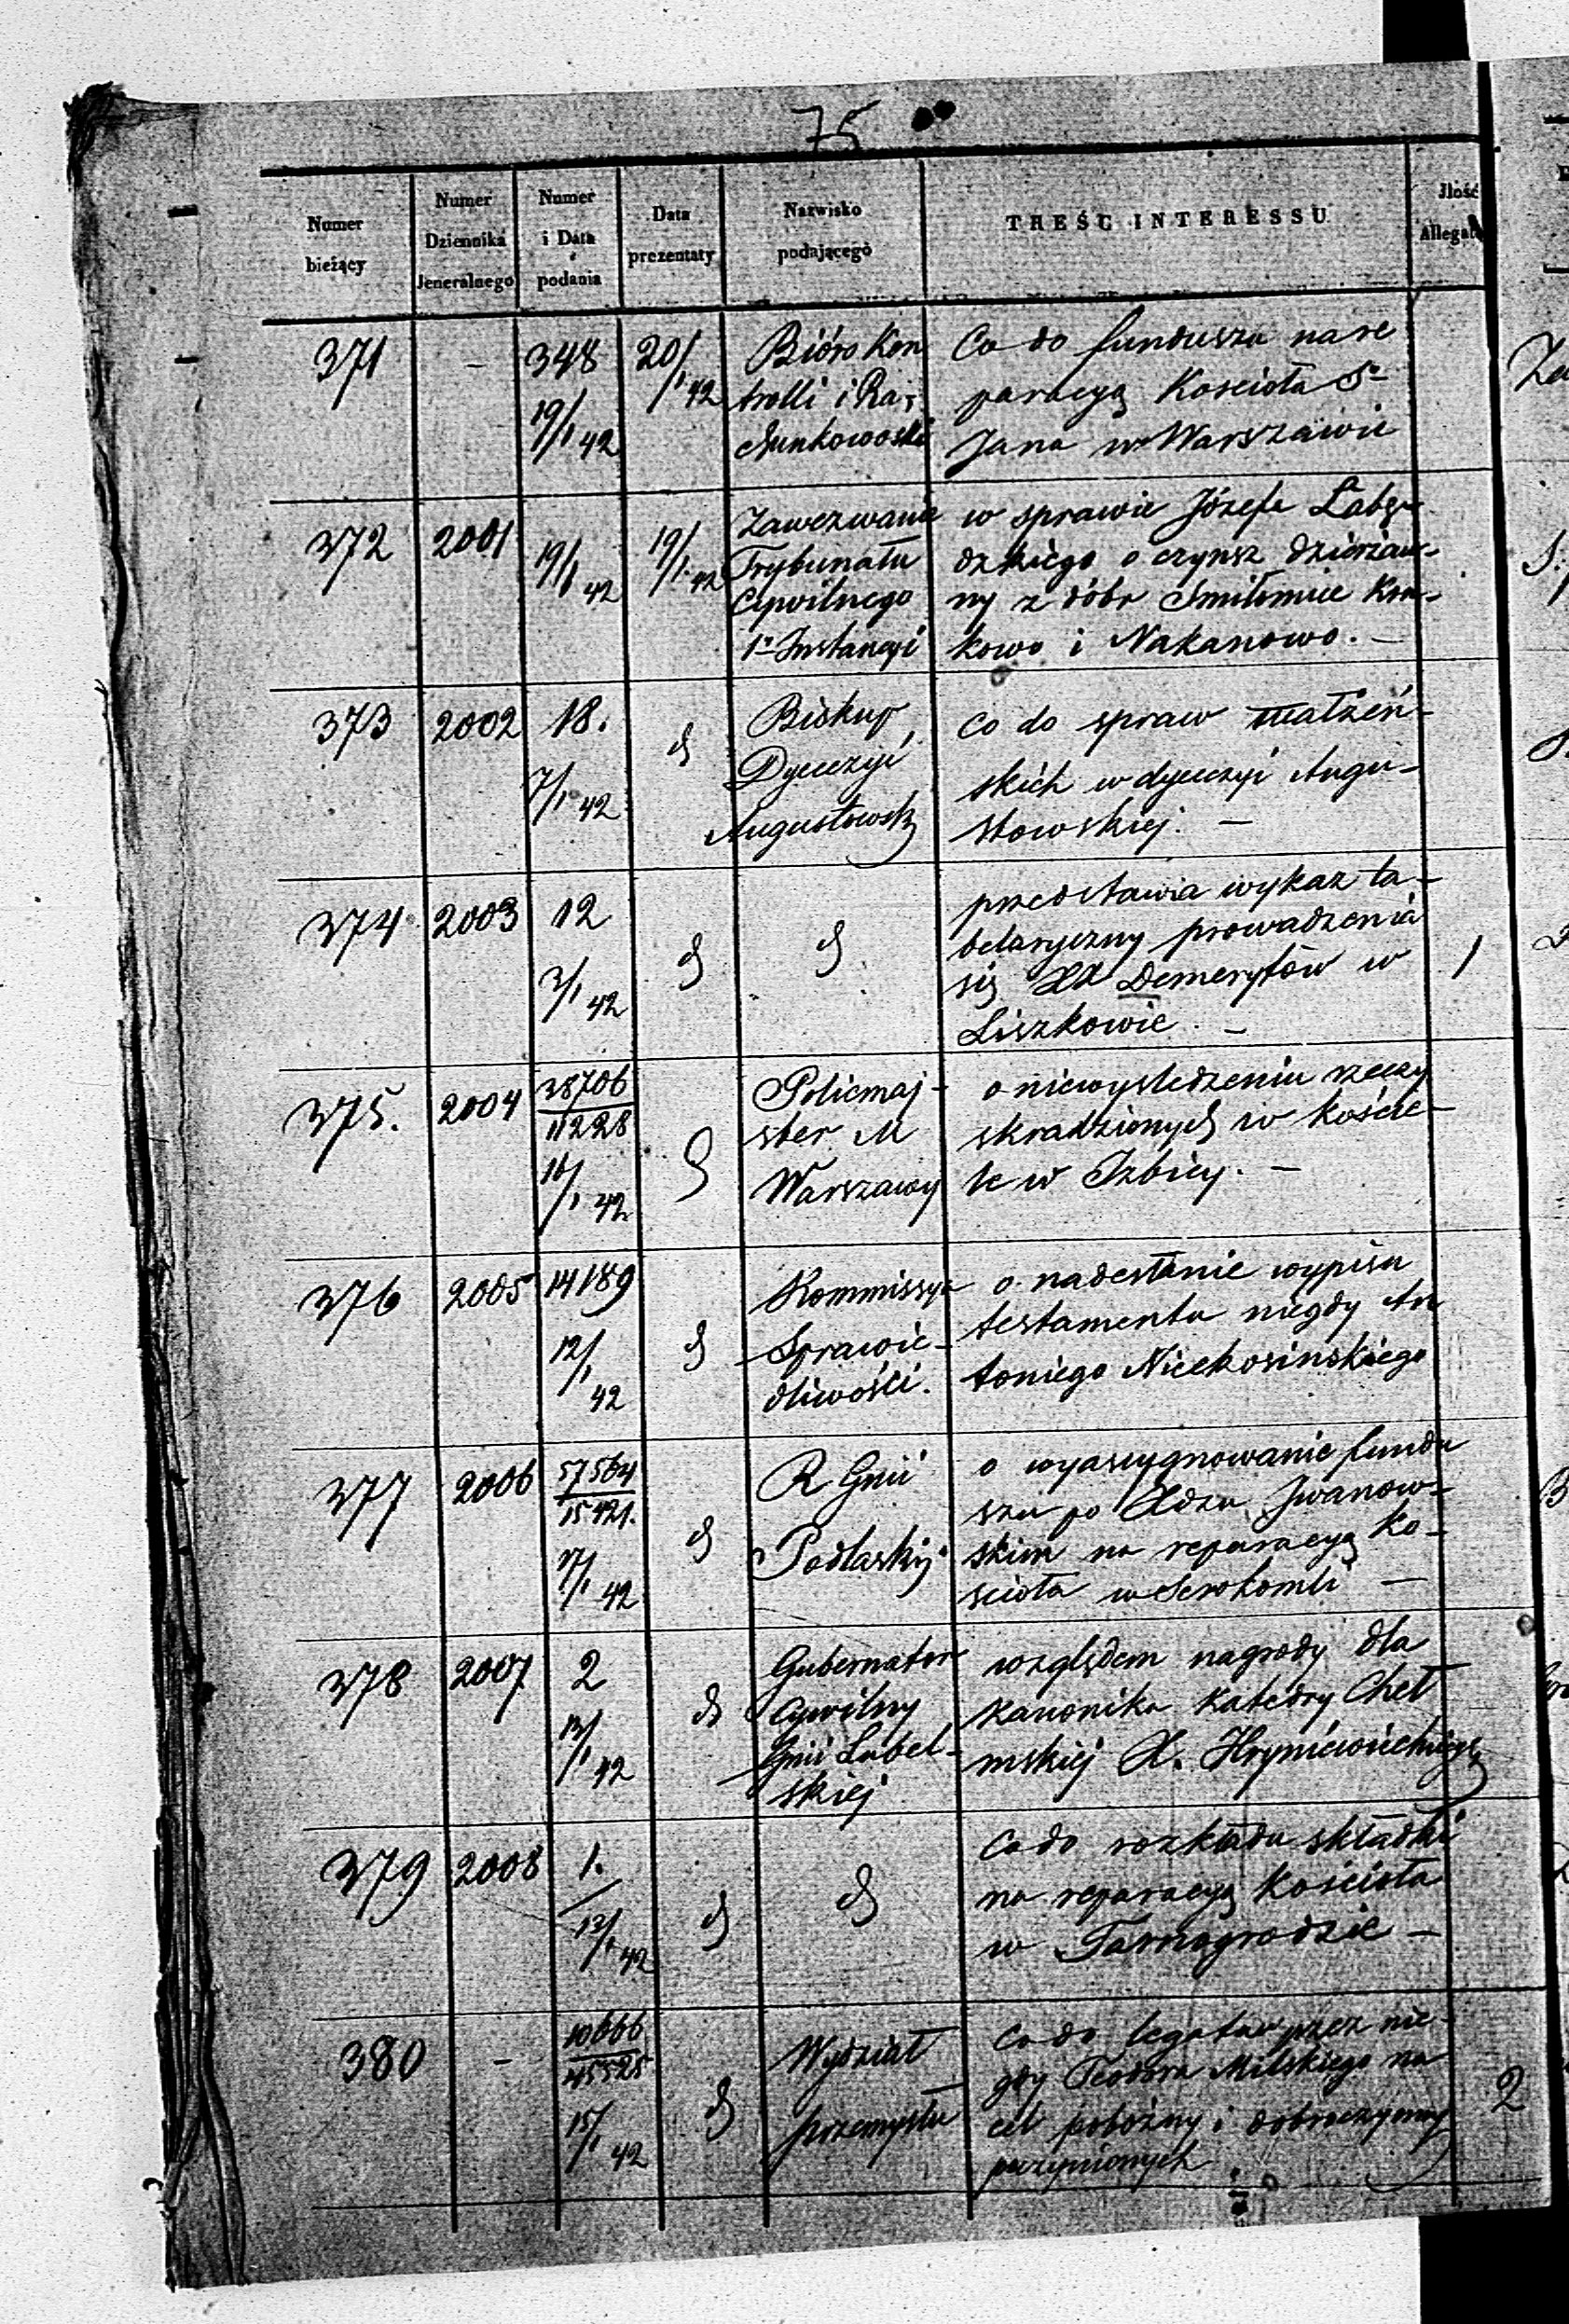 75
Numer
bieżący
Numer
Dziennika
Jeneralnego
Numer
i Data
podania
Data
prezentaty
Nazwisko
podającego
TREŚĆ INTERESSU
Jlość
Allegat
371
-
348
19/1 42
20/1 42
Bióro Kon
trolli i Ra-
chunkowości
Co do funduszu na re
paracyą Kościoła Sº
Jana w Warszawie
372
2001
19/1 42
19/1 42
Zawezwanie
Trybunału
Cywilnego
1ª Instancyi
w sprawie Józefa Labę-
dzkiego o czynsz dzierżaw-
ny z dóbr Smiłowice Kru-
kowo i Nakanowo. —
373
2002
18.
7/1 42
d
Biskup
Dyecezyi
Augustowsk
co do spraw małżeń-
skich w dyecezyi Augu-
stowskiej. —
374
2003
12
3/1 42
d
d
przedstawia wykaz ta-
bellaryczny prowadzenia
się XX Demerytów w
Liszkowie. —
1
375.
2004
38706
11228
16/1 42
d
Policmaj-
ster M
Warszawy
o niewyśledzeniu rzeczy
skradzionych w koście-
le w Izbicy. —
376
2005
14189
12/1 42
d
Kommissya
Sprawie-
dliwości.
o nadesłanie wypisu
testamentu niegdy An
toniego Niekosińskiego
377
2006
57564
15421.
17/1 42
d
R Gnii
Podlaskij
o wyasygnowanie fundu
szu po Xdzu Iwanow-
skim na reparacyą ko-
ścioła w Serokomli —
378
2007
2
13/1 42
d
Gubernator
Cywilny
Gnii Lubel-
skiej
względem nagrody dla
kanonika Katedry Cheł
mskiej X. Hryniewieckiego
379
2008
1.
13/1 42
d
d
Co do rozkładu składki
na reparacyą Kościoła
w Tarnogrodzie —
380
-
10666
45525
15/1 42
d
Wydział
przemysłu
Co do legatów przez nie-
gdy Teodora Milskiego na
cel pobożny i dobroczynny
poczynionych
2